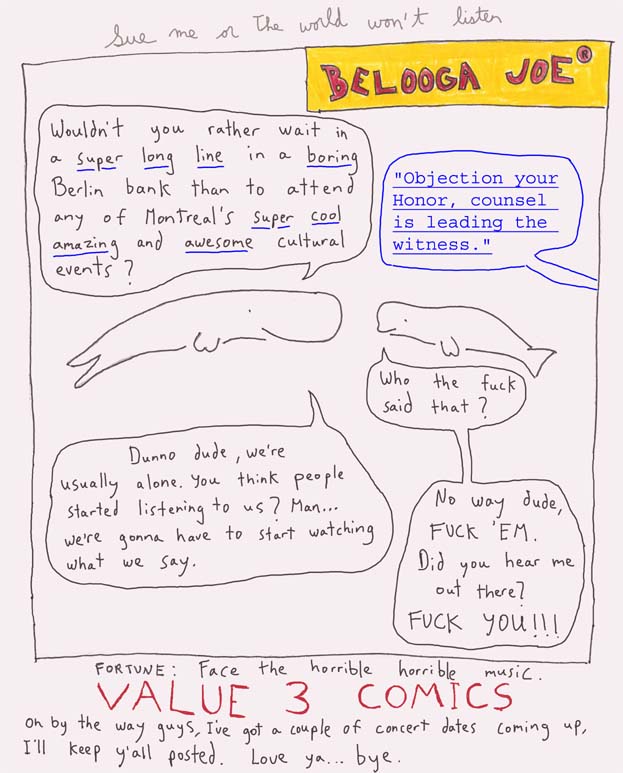 Sue me or the world won't listen
BELOOGA JOE®
Wouldn't you rather wait in
a super long line in a boring
Berlin bank than to attend
any of Montreal's super cool
amazing and awesome cultural
events?
"Objection your
Honor, counsel
is leading the
witness."
Who the fuck
said that?
Dunno dude, we're
usually alone. You think people
started listening to us? Man...
we're gonna have to start watching
what we say.
No way dude,
FUCK 'EM.
Did you hear me
out there?
FUCK YOU!!!
FORTUNE: Face the horrible horrible music.
VALUE 3 COMICS
Oh by the way guys, I've got a couple of concert dates coming up,
I'll keep y'all posted. Love ya... bye.